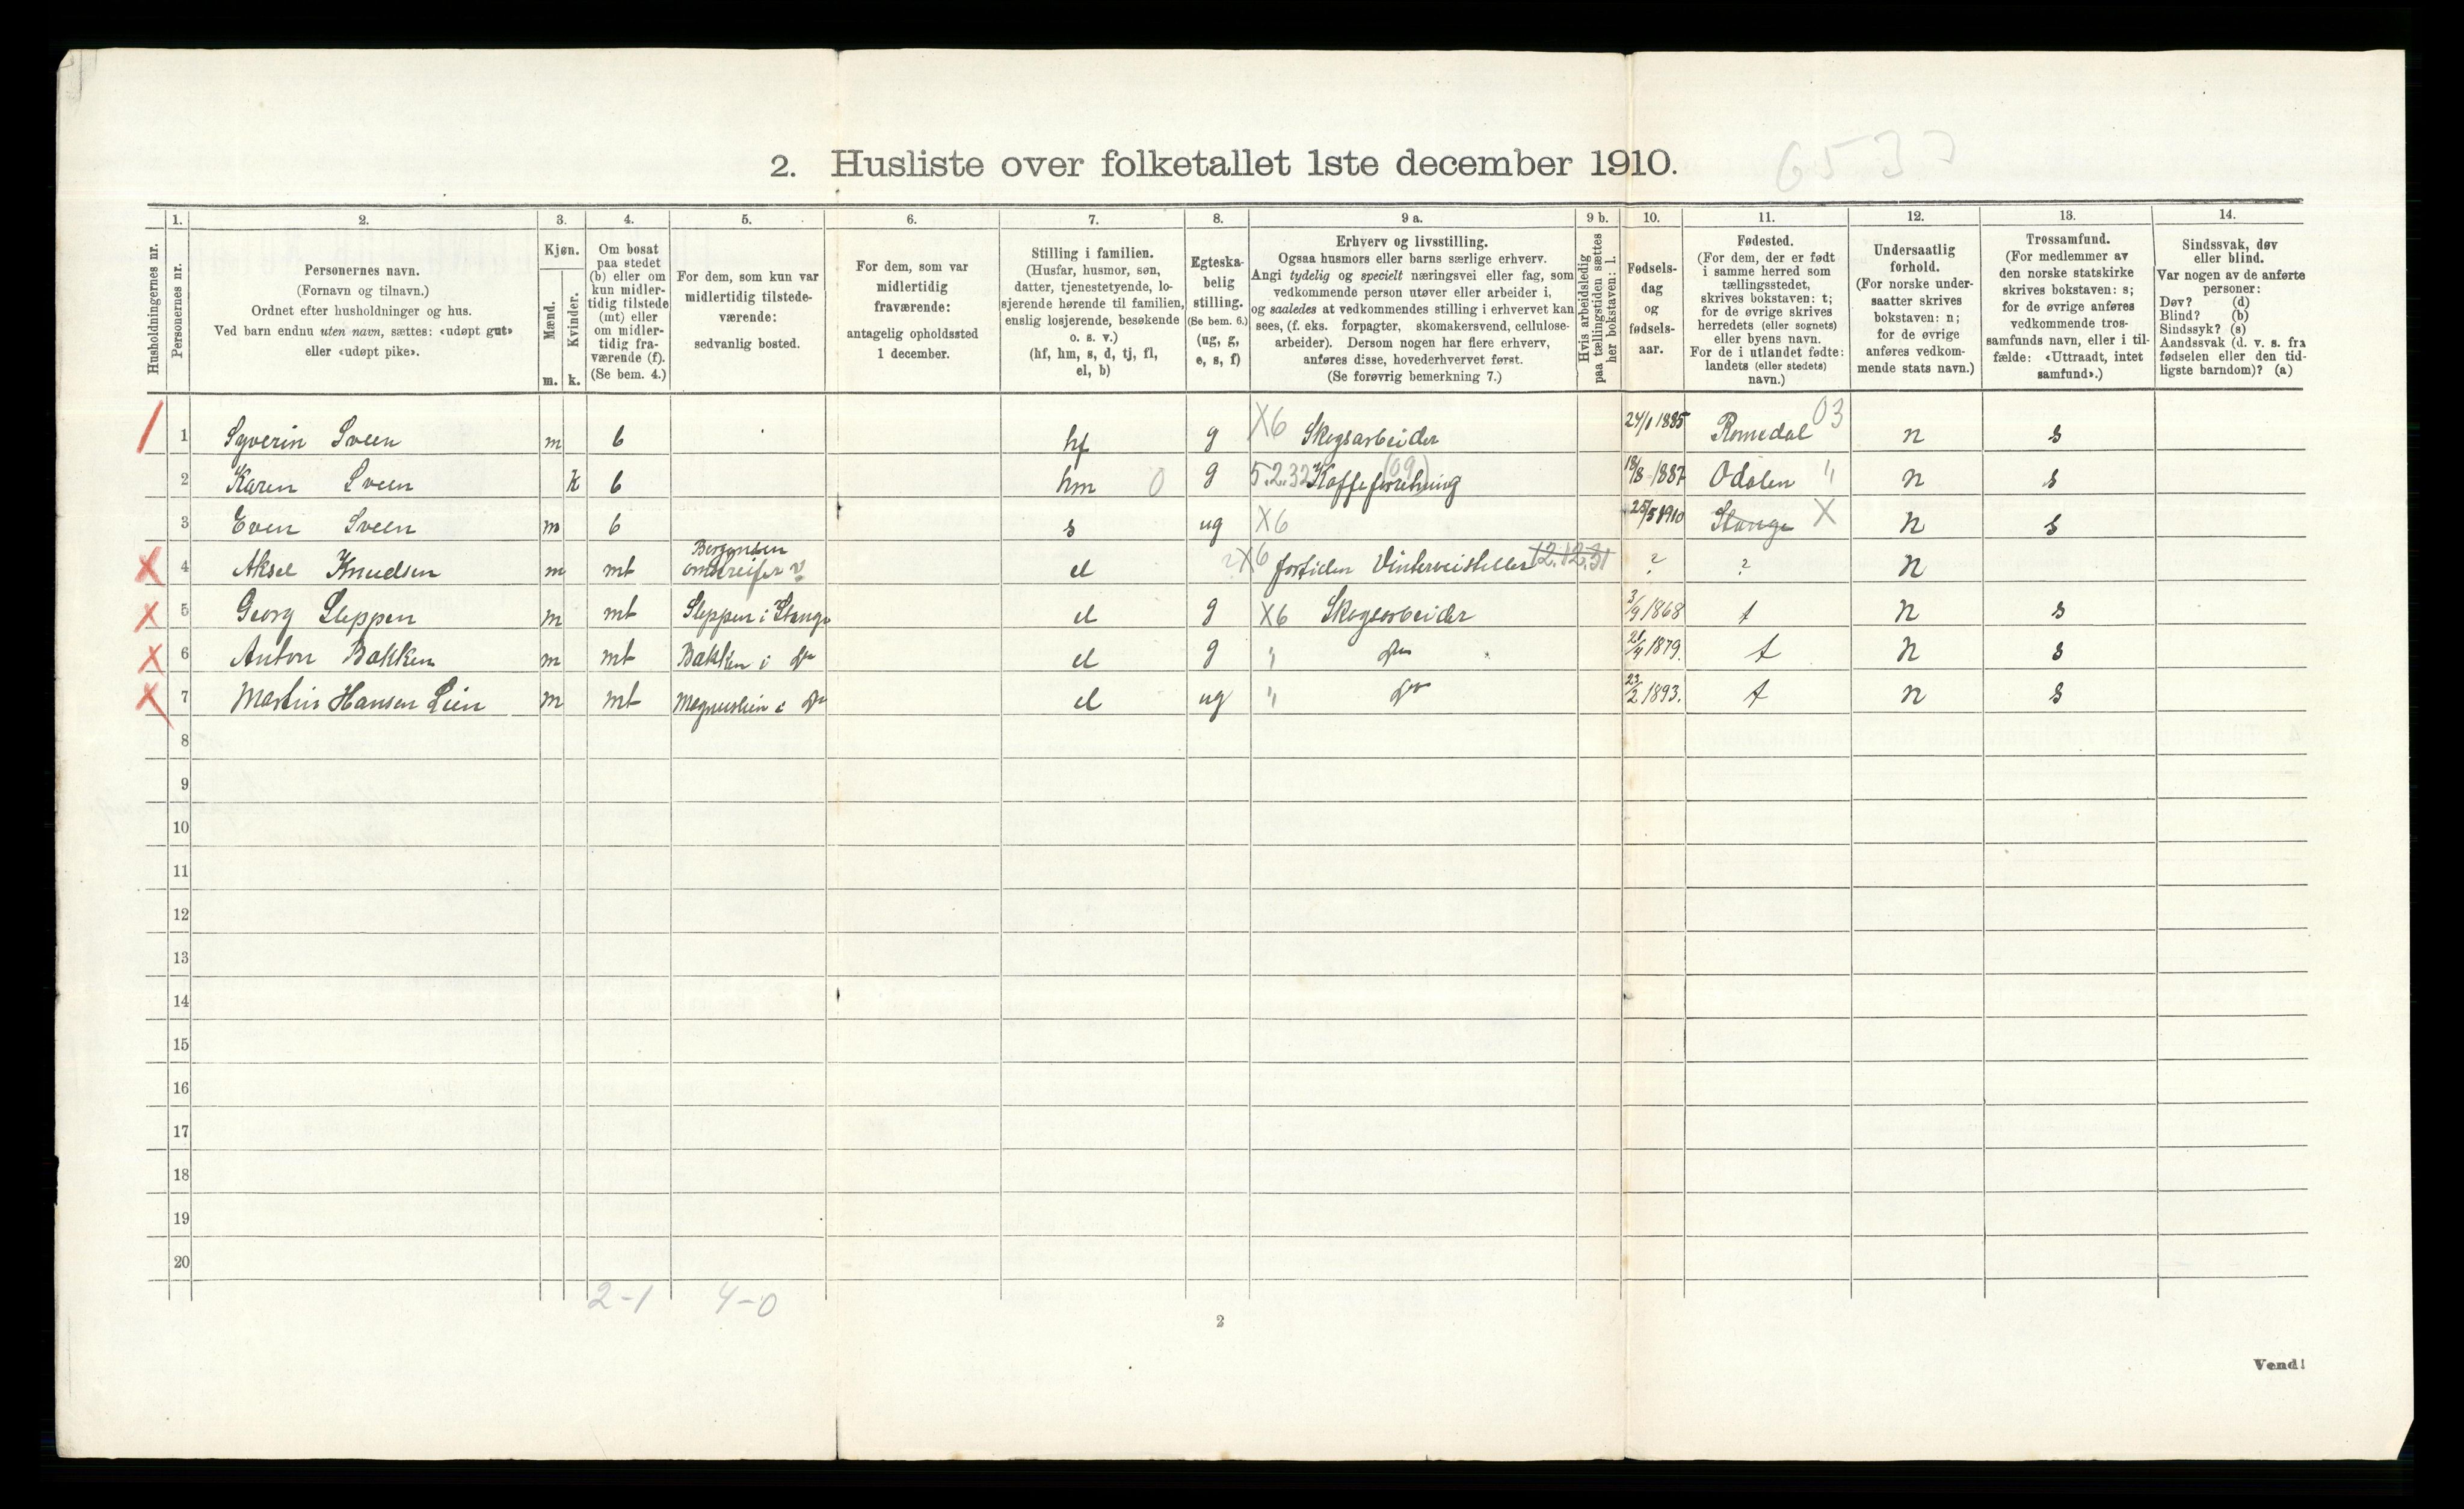 6533
2. Husliste over folketallet 1ste december 1910.
Husholdningernes nr.
1. Personernes nr.
2. Personernes navn.
(Fornavn og tilnavn.)
Ordnet efter husholdninger og hus.
Ved barn endnu uten navn, sættes: «udøpt gut»
eller «udøpt pike».
3. Kjøn.
Mænd. m.
Kvinder. k.
4. Om bosat
paa stedet
(b) eller om
kun midler-
tidig tilstede
(mt) eller
om midler-
tidig fra-
værende (f).
(Se bem. 4.)
5. For dem, som kun var
midlertidig tilstede-
værende:
sedvanlig bosted.
6. For dem, som var
midlertidig
fraværende:
antagelig opholdssted
1 december.
7. Stilling i familien.
(Husfar, husmor, søn,
datter, tjenestetyende, lo-
sjerende hørende til familien,
enslig losjerende, besøkende
o. s. v.)
(hf, hm, s, d, tj, fl,
el, b)
8. Egteska-
belig
stilling.
(Se bem. 6.)
(ug, g,
e, s, f)
9 a. Erhverv og livsstilling.
Ogsaa husmors eller barns særlige erhverv.
Angi tydelig og specielt næringsvei eller fag, som
vedkommende person utøver eller arbeider i,
og saaledes at vedkommendes stilling i erhvervet kan
sees, (f. eks. forpagter, skomakersvend, cellulose-
arbeider). Dersom nogen har flere erhverv,
anføres disse, hovederhvervet først.
(Se forøvrig bemerkning 7.)
9 b. Hvis arbeidsledig
paa tællingstiden sættes
her bokstaven: l.
10. Fødsels-
dag
og
fødsels-
aar.
11. Fødested.
(For dem, der er født
i samme herred som
tællingsstedet,
skrives bokstaven: t;
for de øvrige skrives
herredets (eller sognets)
eller byens navn.
For de i utlandet fødte:
landets (eller stedets)
navn.)
12. Undersaatlig
forhold.
(For norske under-
saatter skrives
bokstaven: n;
for de øvrige
anføres vedkom-
mende stats navn.)
13. Trossamfund.
(For medlemmer av
den norske statskirke
skrives bokstaven: s;
for de øvrige anføres
vedkommende tros-
samfunds navn, eller i til-
fælde: «Uttraadt, intet
samfund».)
14. Sindssvak, døv
eller blind.
Var nogen av de anførte
personer:
Døv? (d)
Blind? (b)
Sindssyk? (s)
Aandssvak (d. v. s. fra
fødselen eller den tid-
ligste barndom)? (a)
1 Syverin Sveen m b hf g X6 Skogsarbeider 24/1 1885 Romedal 03 n s
2 Karen Sveen k b hm 0 g 5.2.32 Kaffeforretning (09) 18/8 1887 Odalen " n s
3 Even Sveen m b s ug X6 25/5 1910 Stange X n s
4 Aksel Knudsen m mt Bergensen omstreifer el ? X6 fortiden Vinterveisteller 12.12.31 ? ? n
5 Georg Sleppen m mt Sleppen i Stange el g X6 Skogsarbeider 3/9 1868 t n s
6 Anton Bakken m mt Bakken i do el g " do 21/4 1879. t n s
7 Martin Hansen Lien m mt Magnuslien i do el ug " do 23/2 1893. t n s
8
9
10
11
12
13
14
15
16
17
18
19
20
2-1 4-0
2
Vend!